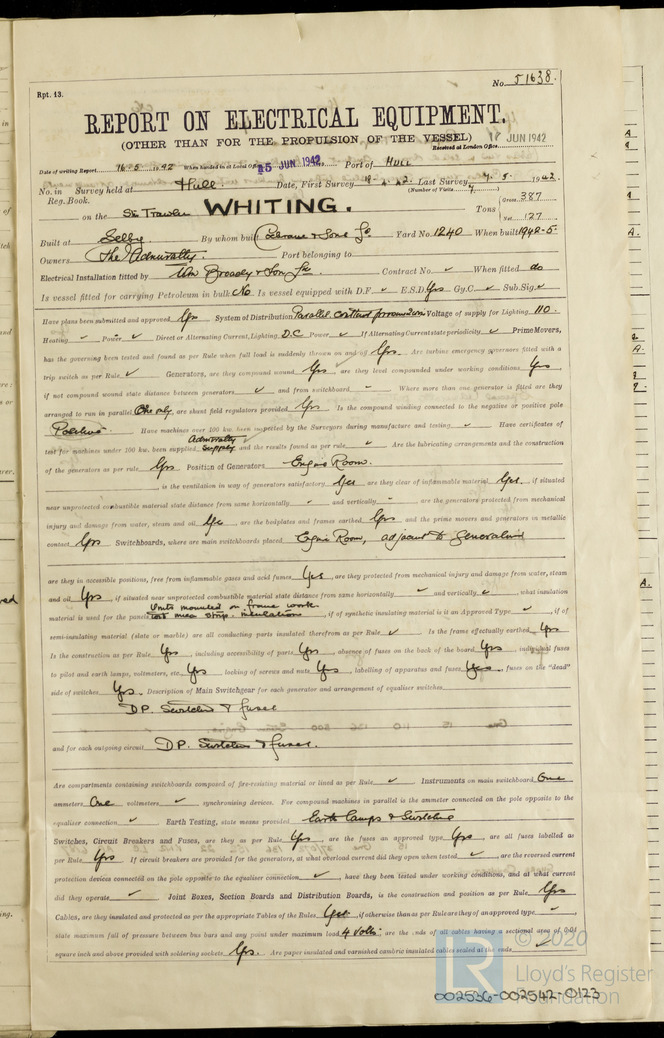 No. 51638.
Rpt. 13.
REPORT ON ELECTRICAL EQUIPMENT.
(OTHER THAN FOR THE PROPULSION OF THE VESSEL)
JUN 1942
Received at London Office
Date of writing Report 16-5-1942 When handed in at Local Office 15 JUN 1942 Port of HULL
No. in Survey held at Hull. Date, First Survey Last Survey 7.5.1942.
Reg. Book. (Number of Visits 7)
on the WHITING. Tons Gross 387
Net 127
Built at Selby By whom built Cochrane & Sons Ld Yard No. 1240 When built 1942-5.
Owners The Admiralty. Port belonging to
Electrical Installation fitted by Wm Broady & Son Ld. Contract No. ✓ When fitted do
Is vessel fitted for carrying Petroleum in bulk No. Is vessel equipped with D.F. ✓ E.S.D. Yes Gy.C. ✓ Sub.Sig. ✓
Have plans been submitted and approved Yes System of Distribution Parallel Voltage of supply for Lighting 110.
Heating ✓ Power ✓ Direct or Alternating Current, Lighting D.C Power ✓ If Alternating Current state periodicity ✓ Prime Movers,
has the governing been tested and found as per Rule when full load is suddenly thrown on and off Yes. Are turbine emergency governors fitted with a
trip switch as per Rule ✓ Generators, are they compound wound Yes are they level compounded under working conditions Yes,
if not compound wound state distance between generators ✓ and from switchboard Where more than one generator is fitted are they
arranged to run in parallel One only, are shunt field regulators provided Yes. Is the compound winding connected to the negative or positive pole
Positive. Have machines over 100 kw. been inspected by the Surveyors during manufacture and testing ✓ Have certificates of
Admiralty
test for machines under 100 kw. been supplied supply and the results found as per rule ✓ Are the lubricating arrangements and the construction
of the generators as per rule Yes Position of Generators Engine Room.
, is the ventilation in way of generators satisfactory Yes are they clear of inflammable material Yes, if situated
near unprotected combustible material state distance from same horizontally and vertically are the generators protected from mechanical
injury and damage from water, steam and oil Yes are the bedplates and frames earthed Yes and the prime movers and generators in metallic
contact Yes Switchboards, where are main switchboards placed Engine Room, adjacent to generator
are they in accessible positions, free from inflammable gases and acid fumes Yes, are they protected from mechanical injury and damage from water, steam
and oil Yes, if situated near unprotected combustible material state distance from same horizontally ✓ and vertically ✓ what insulation
Units mounted on frame work
material is used for the panels and mica strip. insulations, if of synthetic insulating material is it an Approved Type ✓, if of
semi-insulating material (slate or marble) are all conducting parts insulated therefrom as per Rule ✓ Is the frame effectually earthed Yes
Is the construction as per Rule Yes, including accessibility of parts Yes, absence of fuses on the back of the board Yes individual fuses
to pilot and earth lamps, voltmeters, etc. Yes locking of screws and nuts Yes, labelling of apparatus and fuses Yes, fuses on the "dead"
side of switches Yes. Description of Main Switchgear for each generator and arrangement of equaliser switches
D.P. Switches & fuses
and for each outgoing circuit D.P. Switches & fuses.
Are compartments containing switchboards composed of fire-resisting material or lined as per Rule ✓ Instruments on main switchboard One
ammeters One voltmeters ✓ synchronising devices. For compound machines in parallel is the ammeter connected on the pole opposite to the
equaliser connection ✓ Earth Testing, state means provided Earth Lamps & Switches
Switches, Circuit Breakers and Fuses, are they as per Rule Yes, are the fuses an approved type Yes, are all fuses labelled as
per Rule Yes If circuit breakers are provided for the generators, at what overload current did they open when tested ✓, are the reversed current
protection devices connected on the pole opposite to the equaliser connection ✓, have they been tested under working conditions, and at what current
did they operate ✓ Joint Boxes, Section Boards and Distribution Boards, is the construction and position as per Rule Yes
Cables, are they insulated and protected as per the appropriate Tables of the Rules Yes, if otherwise than as per Rule are they of an approved type
state maximum fall of pressure between bus bars and any point under maximum load 4 Volts, are the ends of all cables having a sectional area of 0.01
square inch and above provided with soldering sockets Yes. Are paper insulated and varnished cambric insulated cables sealed at the ends
© 2020
Lloyd's Register
Foundation
002536-002542-0123